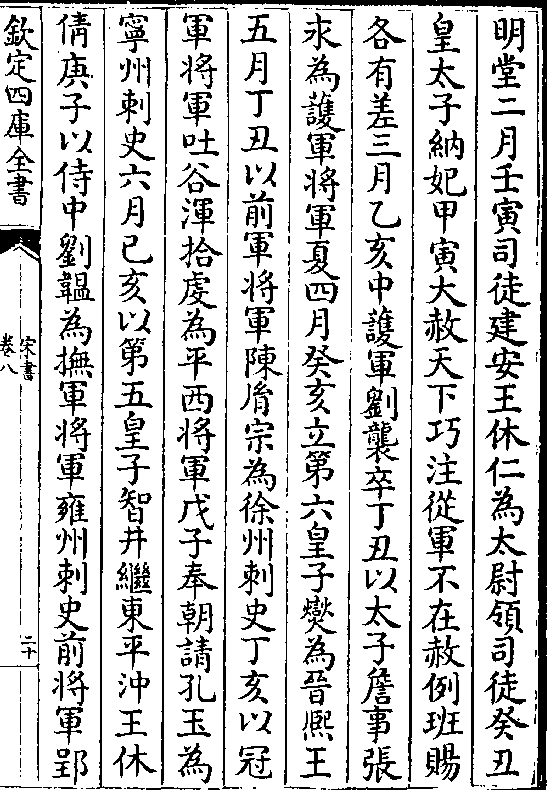 明堂二月壬寅司徒建安王休仁為太尉領司徒癸丑
皇太子納妃甲寅大赦天下巧注從軍不在赦例班賜
各有差三月乙亥中護軍劉襲卒丁丑以太子詹事張
永為護軍將軍夏四月癸亥立第六皇子燮為晉熙王
五月丁丑以前軍將軍陳𦙍宗為徐州刺史丁亥以冠
軍將軍吐谷渾拾䖍為平西將軍戊子奉朝請孔玉為
寧州刺史六月已亥以第五皇子智井繼東平沖王休
倩庚子以侍中劉韞為撫軍將軍雍州刺史前將軍郢
欽定四庫全書
宋書
卷八
二十